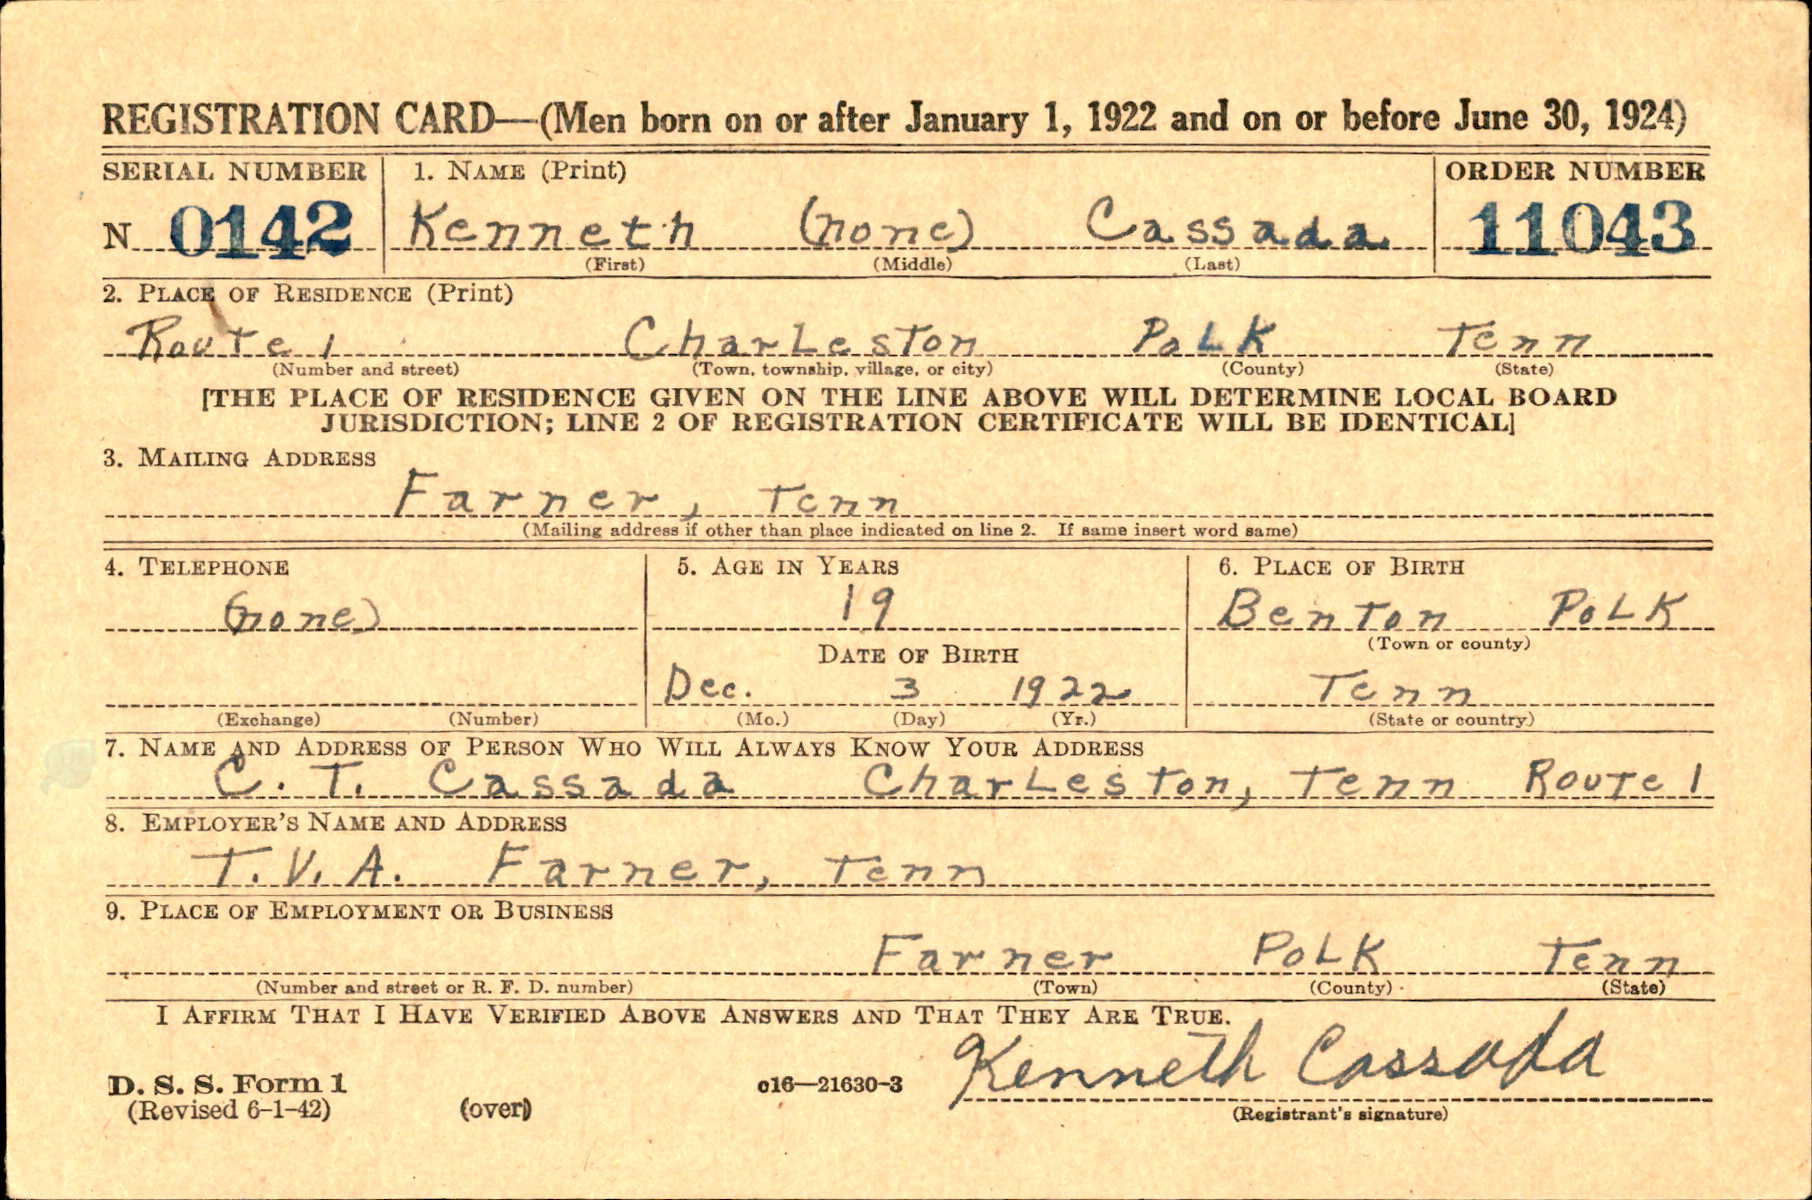 REGISTRATION CARD—(Men born on or after January 1, 1922 and on or before June 30, 1924)
SERIAL NUMBER 1. NAME (Print) ORDER NUMBER
N 0142 Kenneth (none) Cassada 11043
(First) (Middle) (Last)
2. PLACE OF RESIDENCE (Print)
Route 1 CharLesTon PoLK Tenn
(Number and street) (Town, township, village, or city) (County) (State)
[THE PLACE OF RESIDENCE GIVEN ON THE LINE ABOVE WILL DETERMINE LOCAL BOARD
JURISDICTION; LINE 2 OF REGISTRATION CERTIFICATE WILL BE IDENTICAL]
3. MAILING ADDRESS
Farner, Tenn
(Mailing address if other than place indicated on line 2. If same insert word same)
4. TELEPHONE 5. AGE IN YEARS 6. PLACE OF BIRTH
(none) 19 BenTon PoLK
(Town or county)
DATE OF BIRTH
Dec. 3 1922 Tenn
(Exchange) (Number) (Mo.) (Day) (Yr.) (State or country)
7. NAME AND ADDRESS OF PERSON WHO WILL ALWAYS KNOW YOUR ADDRESS
C. T. Cassada CharLesTon, Tenn RouTe 1
8. EMPLOYER'S NAME AND ADDRESS
T.V.A. Farner, Tenn
9. PLACE OF EMPLOYMENT OR BUSINESS
Farner PoLK Tenn
(Number and street or R. F. D. number) (Town) (County) (State)
I AFFIRM THAT I HAVE VERIFIED ABOVE ANSWERS AND THAT THEY ARE TRUE.
Kenneth Cassada
D. S. S. Form 1 c16—21630-3
(Revised 6-1-42) (over) (Registrant's signature)